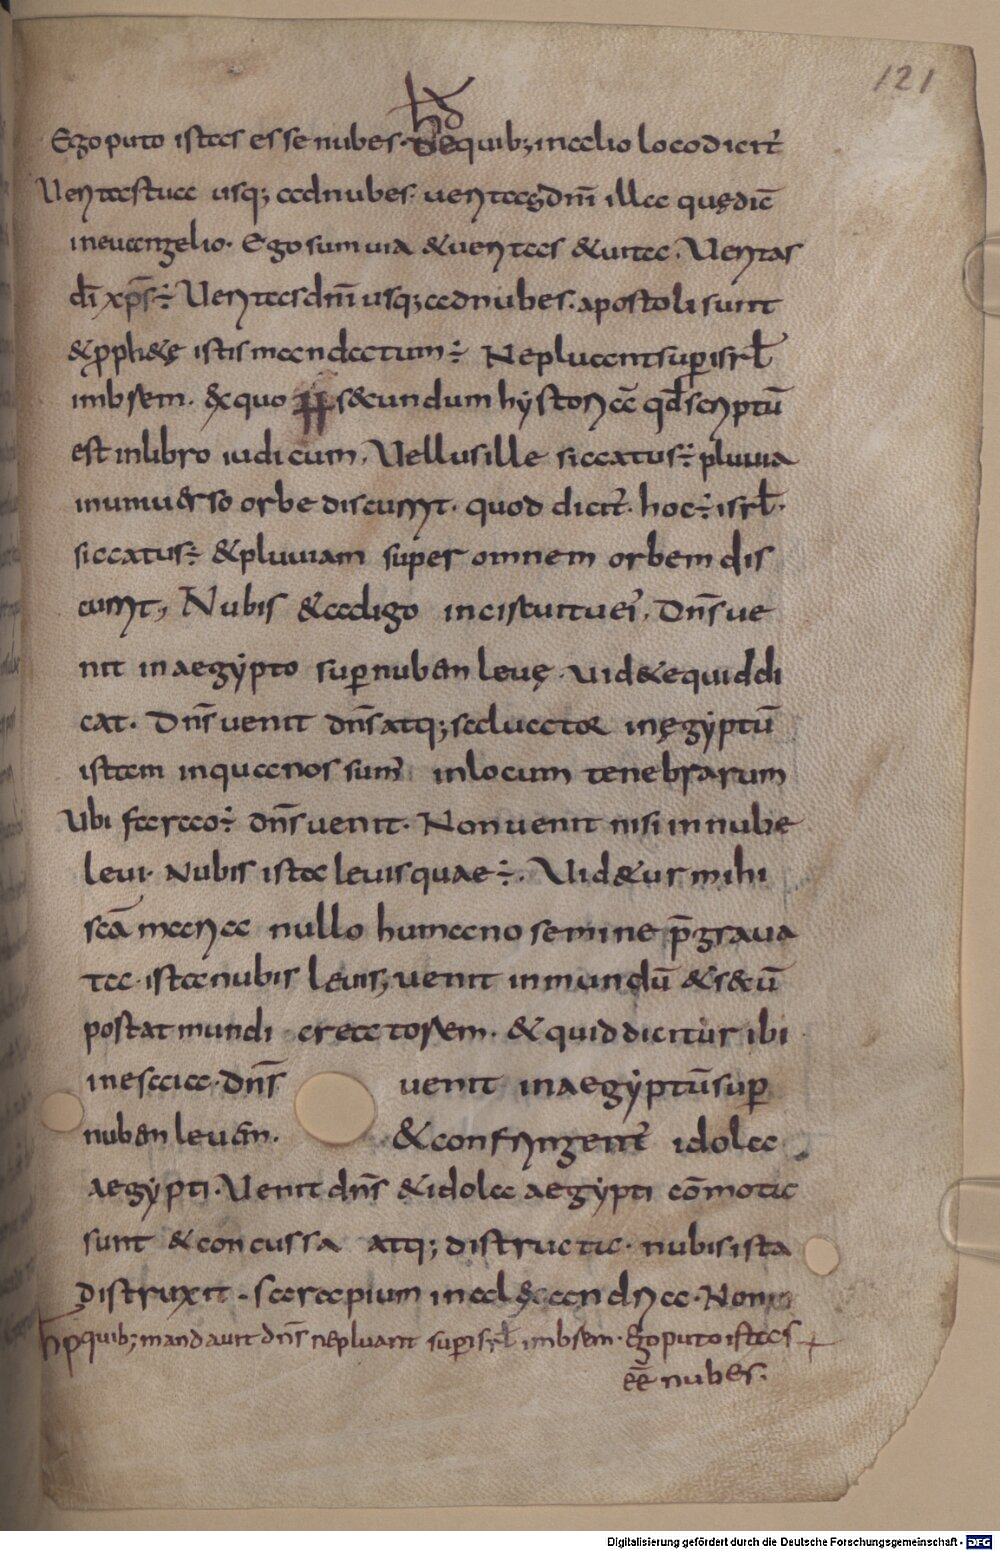 121
hđ
Ego puto istas esse nubes. De quib; in alio loco dicit̄
Veritas tua usq; ad nubes. ueritas dn̄i illa quę dic̄
in euangelio. Ego sum uia & ueritas & uita. Veritas
dī xp̄s ÷ Veritas dn̄i usq; ad nubes. apostoli sunt
& p̄ph&ę istis mandatum ÷ Ne pluant sup̱ isrł
imbrem. & quo secundum hystoriā qđ scriptū
est in libro iudicum. Vellus ille siccatus ÷ pluuia
in uniuerso orbe discurrit. quod dicit̄. hoc ÷ isrł.
siccatus ÷ & pluuiam super omnem orbem dis
currit, Nubis & caligo in circuitu ei᾽. Dn̄s ue
nit in aegypto sup̱ nubem leuę. Vid&e quid di
cat. Dn̄s uenit dn̄s atq; saluator in ęgyptū
istam in qua nos sum᾽ in locum tenebrarum
Vbi farao ÷ dn̄s uenit. Non uenit nisi in nube
leui. Nubis ista leuis quae ÷. Vid&ur mihi
sc̄a maria nullo humano semine p̄graua
ta. ista nubis leuis, uenit in mundū & secū
postat mundi creatorem. & quid dicitur ibi
in esaia. dn̄s uenit in aegyptū sup̱
nubem leuem. & confringent᾽ idola
aegypti. Venit dn̄s & idola aegypti cōmota
sunt & concussa atq; distructa. nubis ista
distruxit. sarapium in alexandria. Non
hp quib; mandauit dn̄s ne pluant sup̱ isrł imbrem. Ego puto istas
ēē nubes.
Digitalisierung gefördert durch die Deutsche Forschungsgemeinschaft - DFG